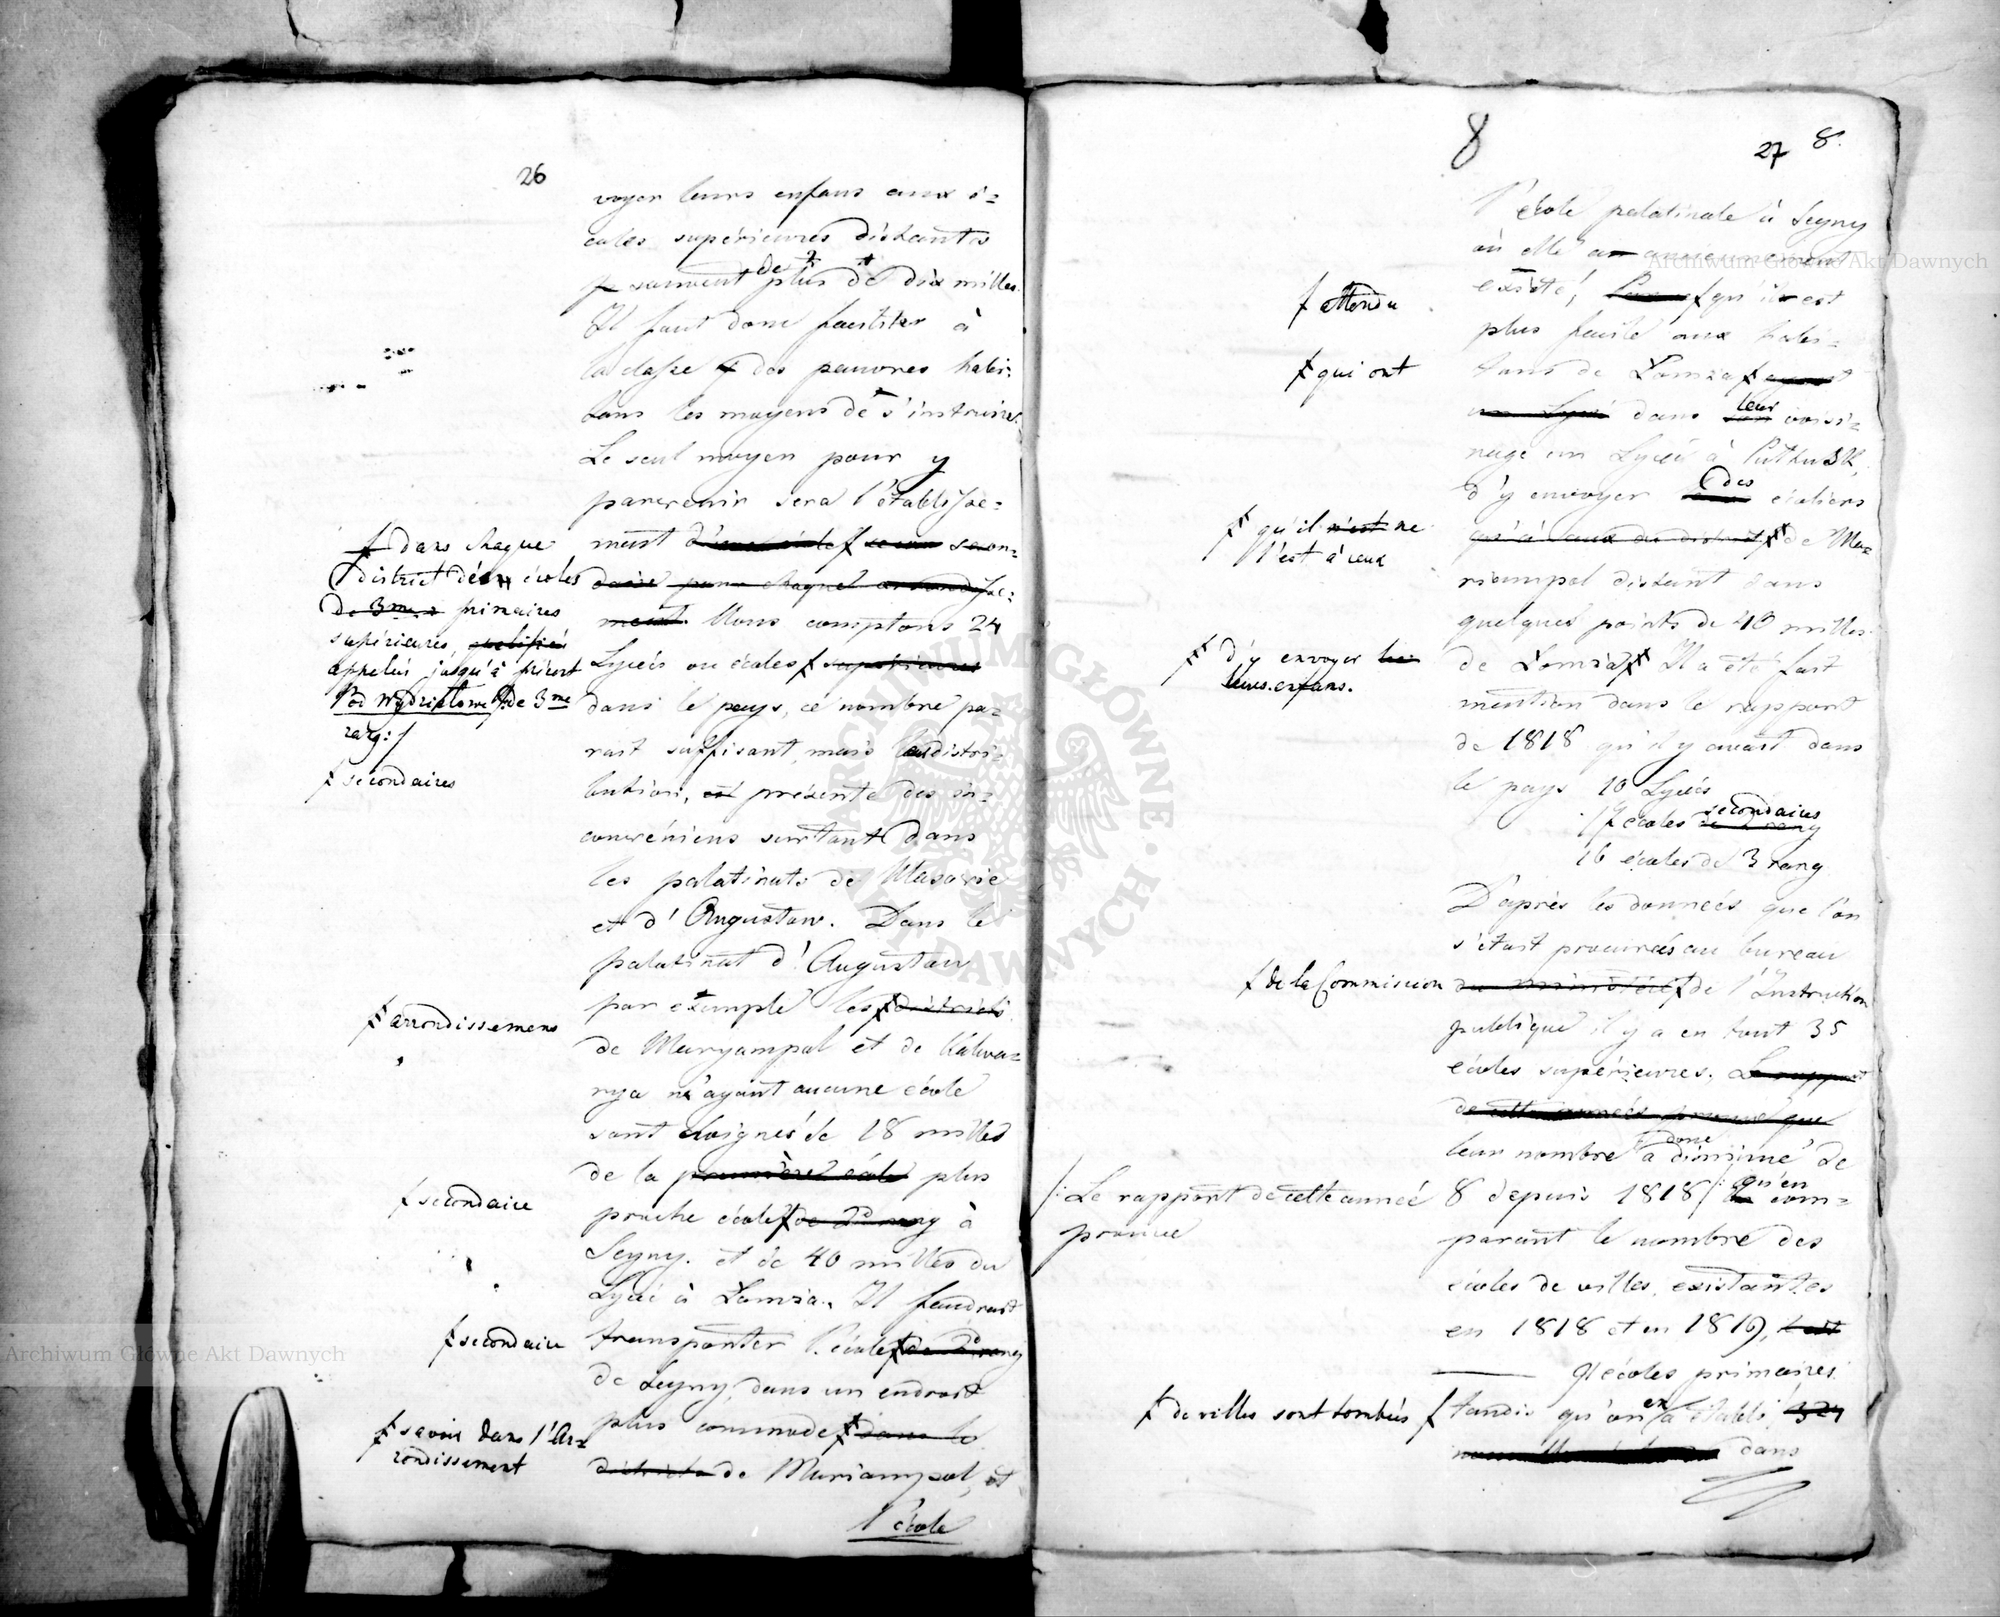 26
voyer leurs enfans aux é=
coles supérieures distantes
souvent de plus de dix milles.
Il faut donc faciliter à
la classe des pauvres habi=
tans les moyens de s'instruire.
Le seul moyen pour y
parvenir sera l'établisse=
ment d'une école secon=
daire pour chaque arrondisse=
ment. Nous comptons 24
Lycées ou écoles supérieures
dans le pays, ce nombre pa=
rait suffisant, mais leur distri=
bution, est présente des in=
convéniens surtout dans
les palatinats de Masovie
et d'Augustow. Dans le
palatinat d'Augustow
par exemple les districts
de Maryampol et de Kalwa=
rya n'ayant aucune école
sont éloignés de 18 milles
de la première école plus
proche école de 2d rang à
Seyny. et de 40 milles du
Lycée à Lomza. Il faudrait
transporter l'école de 2 rang
de Seyny, dans un endroit
plus commode dans le
district de Mariampol, et
l'école
dans chaque
district des écoles
de 3me primaires
supérieures,
appelées jusqu'à présent
Pod Wydziałowe de 3me
rang:/
secondaires
arrondissemens
secondaire
secondaire
savoir dans l'Ar=
rondissement
8
27 8.
l'école palatinale à Seyny
où elle a anciennement
existé! qu'il est
plus facile aux habi=
tans de Lomza ayant
un Lycée dans leur voisi=
nage un Lycée à Pultusk,
d'y envoyer des écoliers
qu'à ceux du district de Ma=
riampol distant dans
quelques points de 40 milles
de Lomza. Il a été fait
mention dans le rapport
de 1818 qu'il y avait dans
le pays 10 Lycées
17 écoles de 2 rang secondaires
16 écoles de 3 rang
D'après les données que l'on
s'etait procurées au bureau
du ministère de l'Instruction
publique il y a en tout 35
écoles supérieures. Le rapport
de cette année prouve que
leur nombre a donc diminué de
8 depuis 1818 /: qu'en com=
parant le nombre des
écoles de villes existantes
en 1818 et en 1819,
91 écoles primaires
tandis qu'on en a établi 324
dans
attendu
qui ont
qu'il n'est ne
l'est à ceux
d'y envoyer
leurs enfans.
de la Commission
/: Le rapport de cette année
prouve
de villes sont tombées
Archiwum Główne Akt Dawnych
Archiwum Główne Akt Dawnych
ARCHIWUM GŁÓWNE AKT DAWNYCH